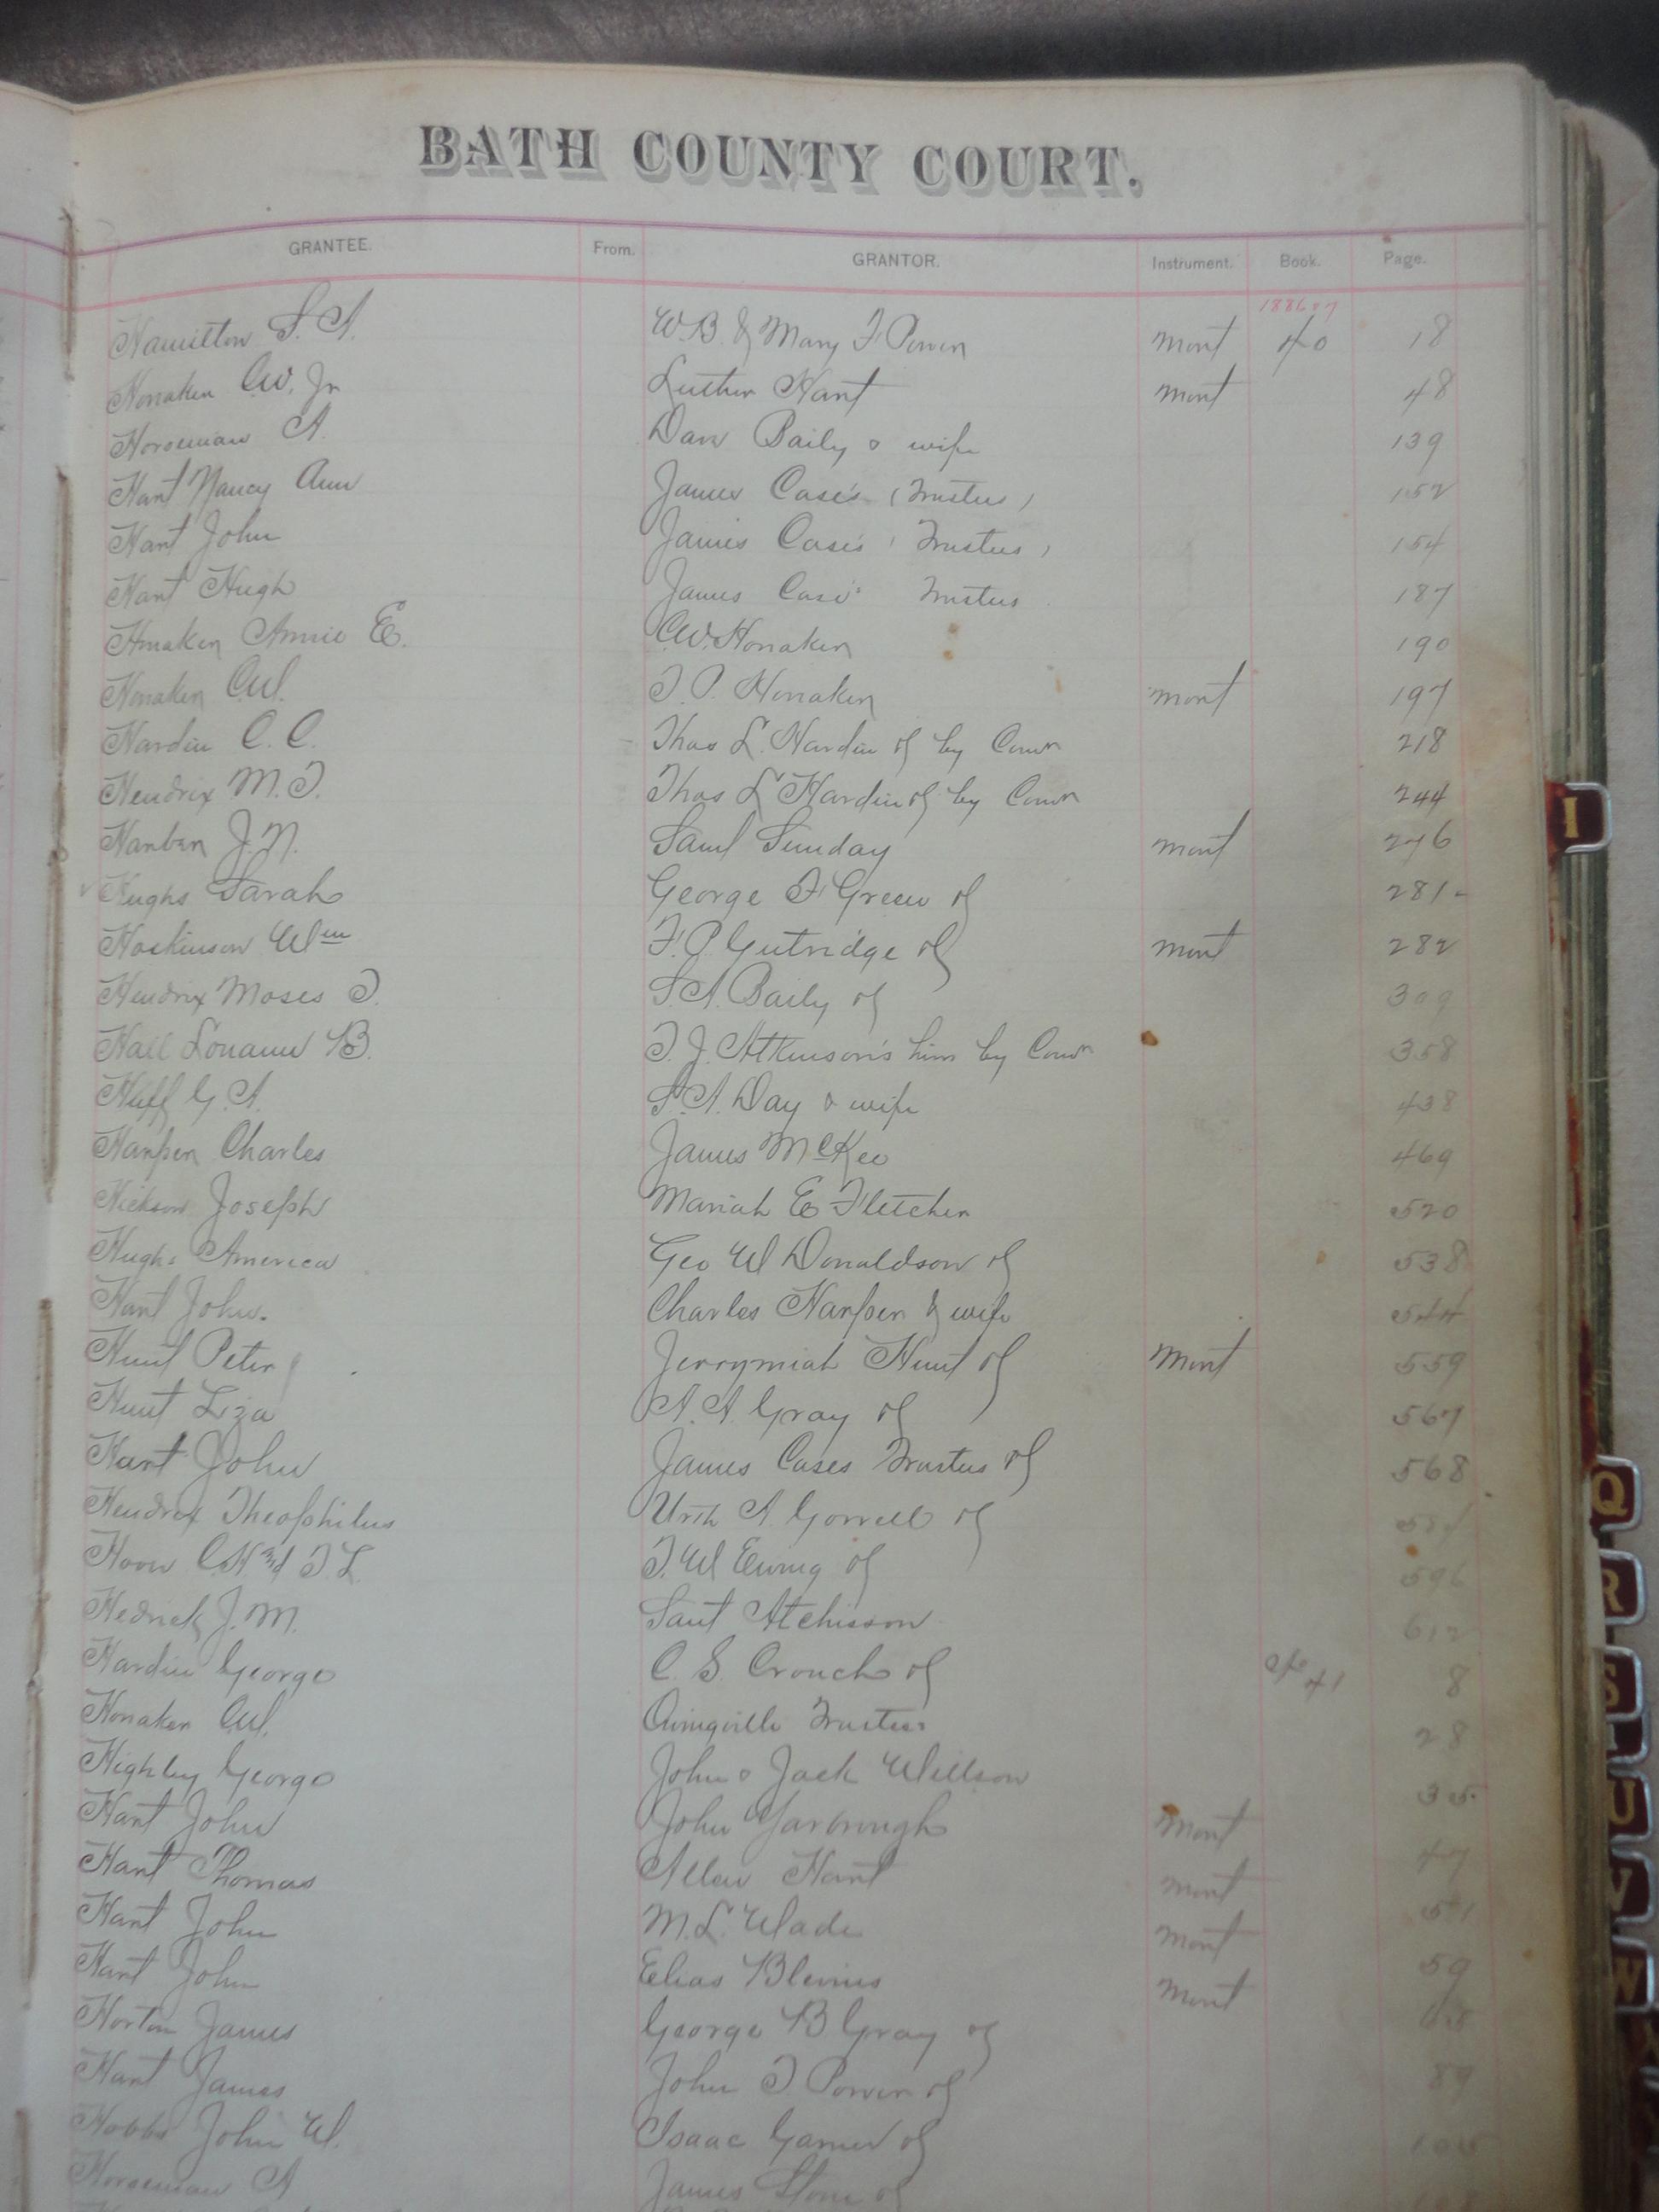 BATH COUNTY COURT.
GRANTEE. From. GRANTOR. Instrument. Book. Page.
1886-7
Hamilton S. A. W.B. & Mary F Power Mort 40 18
Honaker C.W. Jr Luther Hart Mort 48
Horseman A. Dan Baily & wife 139
Hart Nancy Ann James Case's (Trustees) 152
Hart John James Case's (Trustees) 154
Hart Hugh James Case's Trustees 187
Honaker Annie E. C.W. Honaker 190
Honaker C.W. T. P. Honaker Mort 197
Hardin C. C. Thos L. Hardin of by Comr 218
Hendrix M. T. Thos L Hardin of by Comr 244
J. N. Saml Sunday Mort 246
Hughs Sarah George F Green of 281
Hoskinson Wm F. P. Gutridge of Mort 282
Hendrix Moses T. S. A. Baily of 309
Hall Louann B. T. J. Atkinson's by Comr 358
Huff G. A. S. A. Day & wife 438
Harper Charles James McKee 469
Joseph Mariah E Fletcher 520
Hughs America Geo W Donaldson of 538
Hart John. Charles Harper & wife 544
Hunt Peter Jerrymiah Hunt of Mort 559
Hunt Liza A. A. Gray of 567
Hart John James Cases Trustees of 568
Hendrix Theophilus A Gorrell of
T L T. W Ewing of 596
Hedrick J. M. Atchisson 612
Hardin George C. S. Crouch of 41 8
Honaker C.W. Owingsville Trustees 28
Highley George John & Jack Willson 35
Hart John John Yarbrough Mort 47
Hart Thomas Allen Hart Mort 51
Hart John M. L. Wade Mort 59
Hart John Elias Blevins Mort
Horton James George B Gray of
Hart James John T. Power of 89
Hobbs John W. Isaac Garner of 105
Horseman A James Stone of
I
Q
R
S
U
V
W